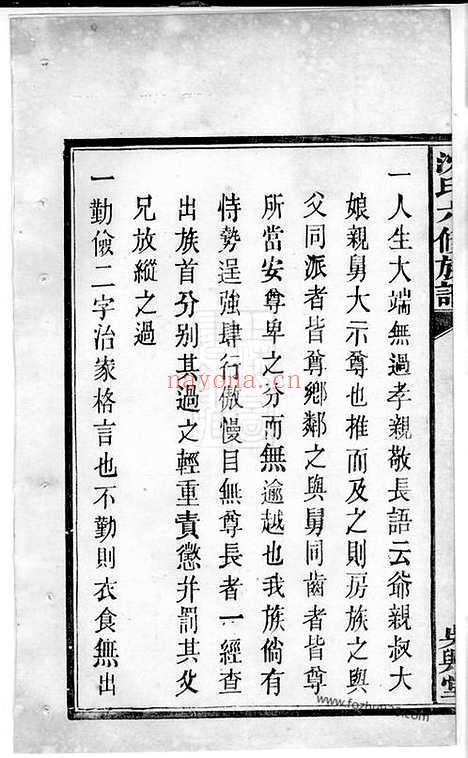 沈氏六修族譜
吳興堂
一人生大端無過孝親敬長語云爺親叔大
娘親舅大示尊也推而及之則房族之與
父同派者皆尊鄉鄰之與舅同齒者皆尊
所當安尊卑之分而無逾越也我族倘有
恃勢逞強肆行傲慢目無尊長者一經查
出族首分別其過之輕重責懲并罰其父
兄放縱之過
一勤儉二字治家格言也不勤則衣食無出
nayona.cn